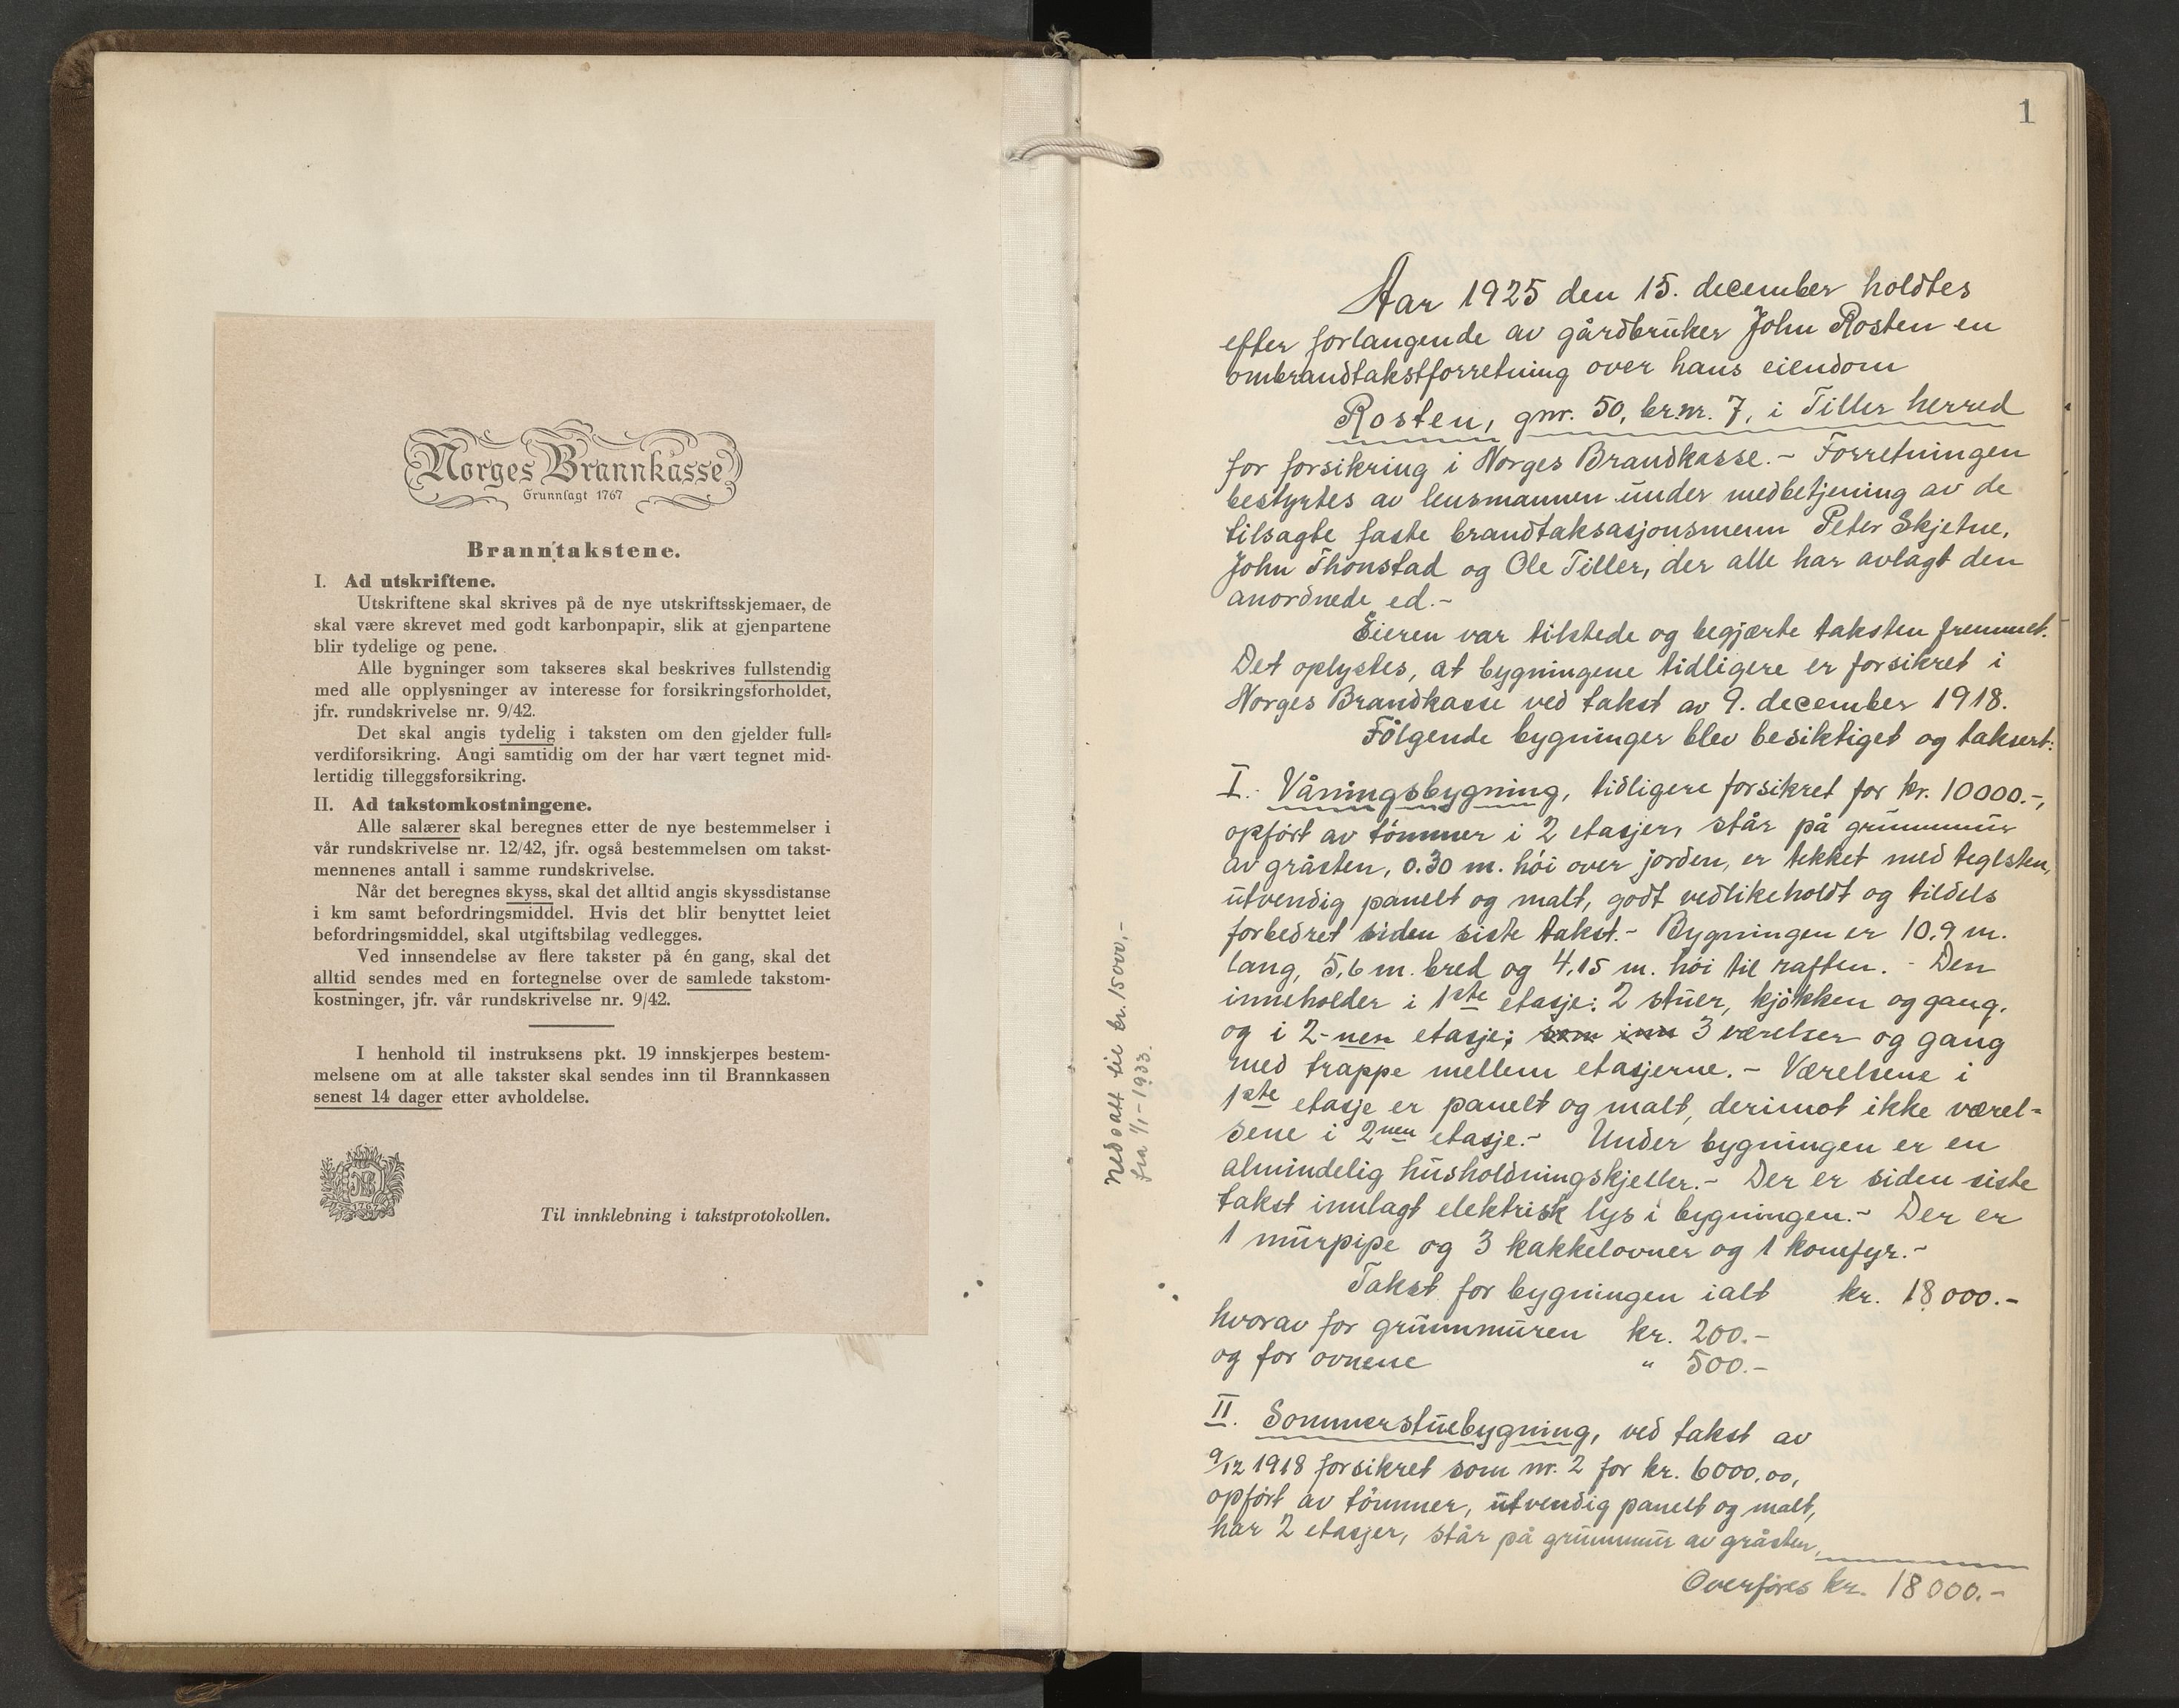 Norges Brannkasse
Grunnlagt 1767
Branntakstene.
I. Ad utskriftene.
Utskriftene skal skrives på de nye utskriftsskjemaer, de
skal være skrevet med godt karbonpapir, slik at gjenpartene
blir tydelige og pene.
Alle bygninger som takseres skal beskrives fullstendig
med alle opplysninger av interesse for forsikringsforholdet,
jfr. rundskrivelse nr. 9/42.
Det skal angis tydelig i taksten om den gjelder full-
verdiforsikring. Angi samtidig om der har vært tegnet mid-
lertidig tilleggsforsikring.
II. Ad takstomkostningene.
Alle salærer skal beregnes etter de nye bestemmelser i
vår rundskrivelse nr. 12/42, jfr. også bestemmelsen om takst-
mennenes antall i samme rundskrivelse.
Når det beregnes skyss, skal det alltid angis skyssdistanse
i km samt befordringsmiddel. Hvis det blir benyttet leiet
befordringsmiddel, skal utgiftsbilag vedlegges.
Ved innsendelse av flere takster på én gang, skal det
alltid sendes med en fortegnelse over de samlede takstom-
kostninger, jfr. vår rundskrivelse nr. 9/42.
I henhold til instruksens pkt. 19 innskjerpes bestem-
melsene om at alle takster skal sendes inn til Brannkassen
senest 14 dager etter avholdelse.
NB
1767
Til innklebning i takstprotokollen.
1
Aar 1925 den 15. december holdtes
efter forlangende av gårdbruker John Rosten en
ombrandtakstforretning over hans eiendom
Rosten, gnr. 50, br.nr. 7, i Tiller herred
for forsikring i Norges Brandkasse.- Forretningen
bestyrtes av lensmannen under medbetjening av de
tilsagte faste brandtaksasjonsmenn Peter Skjetne,
John Thonstad og Ole Tiller, der alle har avlagt den
anordnede ed.-
Eieren var tilstede og begjærte taksten fremmet.
Det oplystes, at bygningene tidligere er forsikret i
Norges Brandkasse ved takst av 9. december 1918.
Følgende bygninger blev besiktiget og taksert:
I. Våningsbygning, tidligere forsikret for kr. 10000.-,
opført av tømmer i 2 etasjer, står på grunnmur
av gråsten, 0.30 m. høi over jorden, er tekket med teglsten,
utvendig panelt og malt, godt vedlikeholdt og tildels
forbedret siden siste takst.- Bygningen er 10,9 m.
lang, 5,6 m. bred og 4,15 m. høi til raften. - Den
inneholder i 1ste etasje: 2 stuer, kjøkken og gang,
og i 2-nen etasje; som inn 3 værelser og gang
med trappe mellem etasjerne. - Værelsene i
1ste etasje er panelt og malt, derimot ikke værel=
sene i 2nen etasje.- Under bygningen er en
almindelig husholdningskjeller.- Der er siden siste
takst innlagt elektrisk lys i bygningen.- Der er
1 murpipe og 3 kakkelovner og 1 komfyr.-
Takst for bygningen ialt kr. 18000.-
hvorav for grunnmuren kr. 200.-
og for ovnene " 500.-
II. Sommerstuebygning, ved takst av
9/12 1918 forsikret som nr. 2 for kr. 6000,00,
opført av tømmer, utvendig panelt og malt,
har 2 etasjer, står på grunnmur av gråsten,
Overføres kr. 18000.-
Nedsatt til kr. 15000,-
fra 1/1-1933.